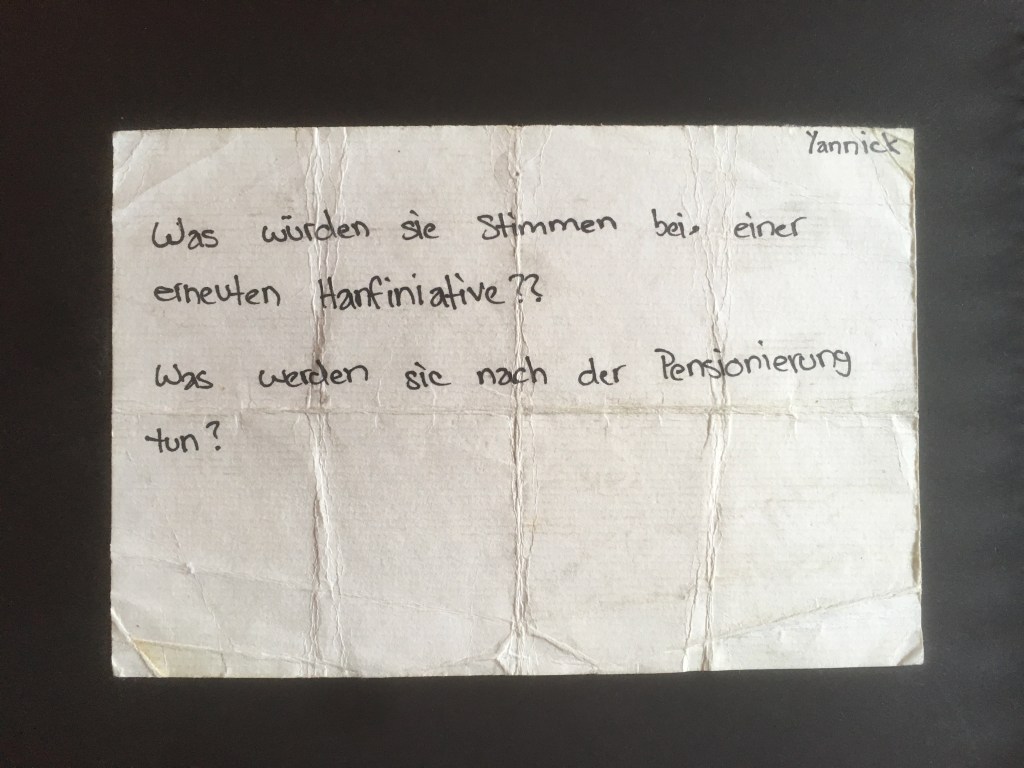 Yannick
Was würden sie Stimmen bei einer
erneuten Hanfiniative??
Was werden sie nach der Pensionierung
tun?